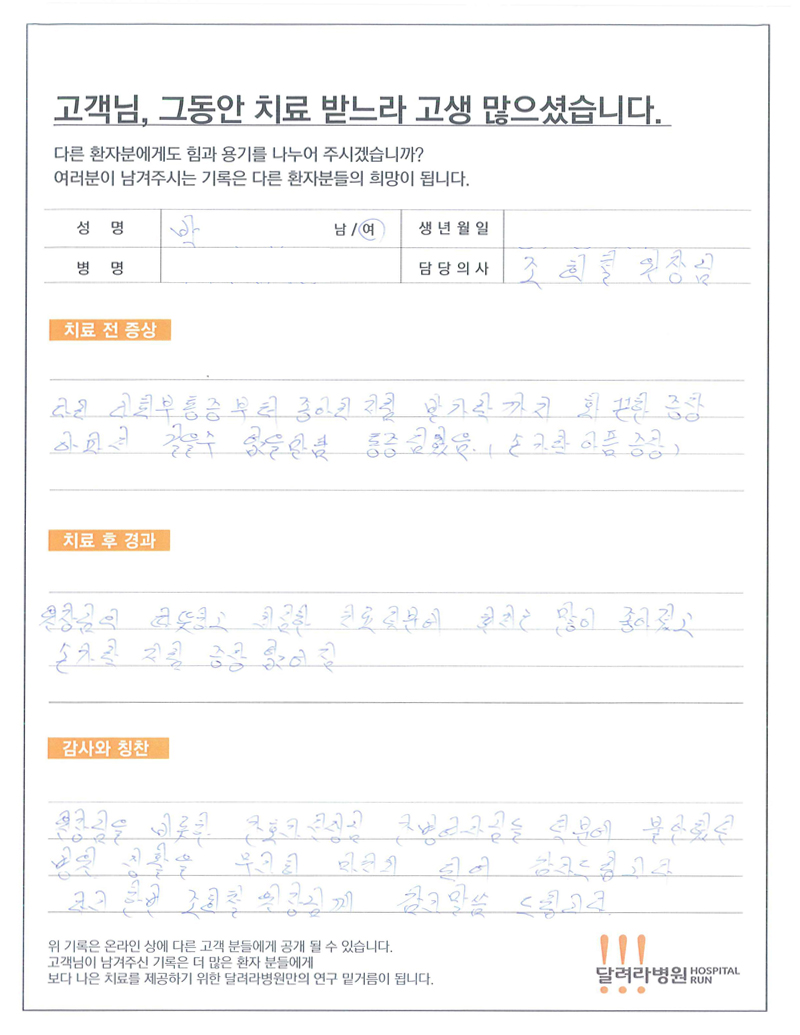 고객님, 그동안 치료 받느라 고생 많으셨습니다.
다른 환자분에게도 힘과 용기를 나누어 주시겠습니까?
여러분이 남겨주시는 기록은 다른 환자분들의 희망이 됩니다.
성 명 박 남 / 여 생년월일
병 명 담당의사 조희철 원장님
치료 전 증상
통증부터 종아리 저림 발가락까지 화끈한 증상
걸을수 없을만큼 통증 심했음. ( 손가락 아픔 증상)
치료 후 경과
원장님의 따뜻하고 치료 덕분에 많이 좋아졌고
손가락 저림 증상 없어짐
감사와 칭찬
원장님을 비롯한 간호사 선생님 덕분에
병원 생활을 무사히 되어 감사드립고요
다시 한번 조희철 원장님께 감사말씀 드립고요
위 기록은 온라인 상에 다른 고객 분들에게 공개 될 수 있습니다.
고객님이 남겨주신 기록은 더 많은 환자 분들에게
보다 나은 치료를 제공하기 위한 달려라병원만의 연구 밑거름이 됩니다.
달려라병원 HOSPITAL RUN